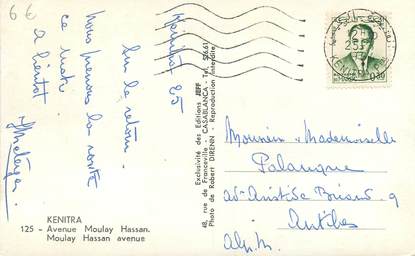 6€
Kenitra 25
Sur le retour.
Nous prenons la route
ce matin.
A bientôt
KENITRA
125 - Avenue Moulay Hassan.
Moulay Hassan avenue
Exclusivité des Editions JEFF
48, rue de Franceville - CASABLANCA Tel. 576.61
Photo de Robert DIRENN - Reproduction interdite
KENITRA
0,30
Monsieur - Mademoiselle
Palanque
av. Aristide Briand 9
Antibes
Alp. M.